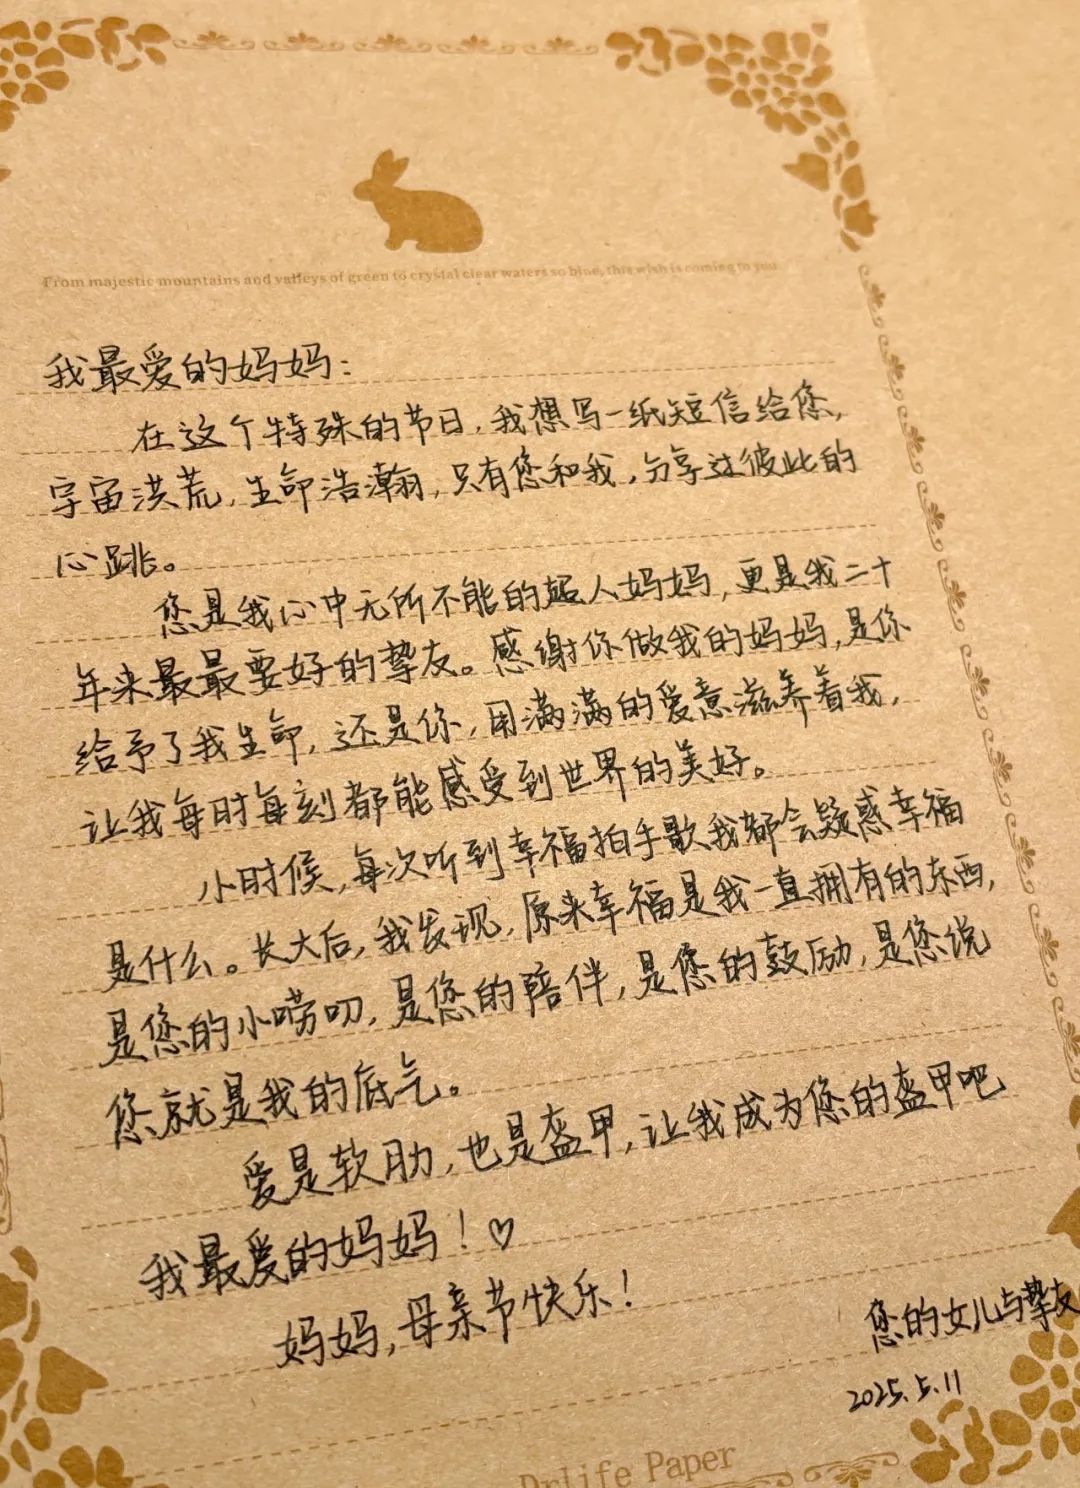 From majestic mountains and valleys of green to crystal clear waters so blue, this wish is coming to you
我最爱的妈妈：
在这个特殊的节日，我想写一纸短信给您，
宇宙洪荒，生命浩瀚，只有您和我，分享过彼此的
心跳。
您是我心中无所不能的超人妈妈，更是我二十
年来最最要好的挚友。感谢你做我的妈妈，是你
给予了我生命，还是你，用满满的爱意滋养着我，
让我每时每刻都能感受到世界的美好。
小时候，每次听到幸福拍手歌我都会疑惑幸福
是什么。长大后，我发现，原来幸福是我一直拥有的东西，
是您的小唠叨，是您的陪伴，是您的鼓励，是您说
您就是我的底气。
爱是软肋，也是盔甲，让我成为您的盔甲吧
我最爱的妈妈！♡
妈妈，母亲节快乐！
您的女儿与挚友
2025.5.11
Drlife Paper